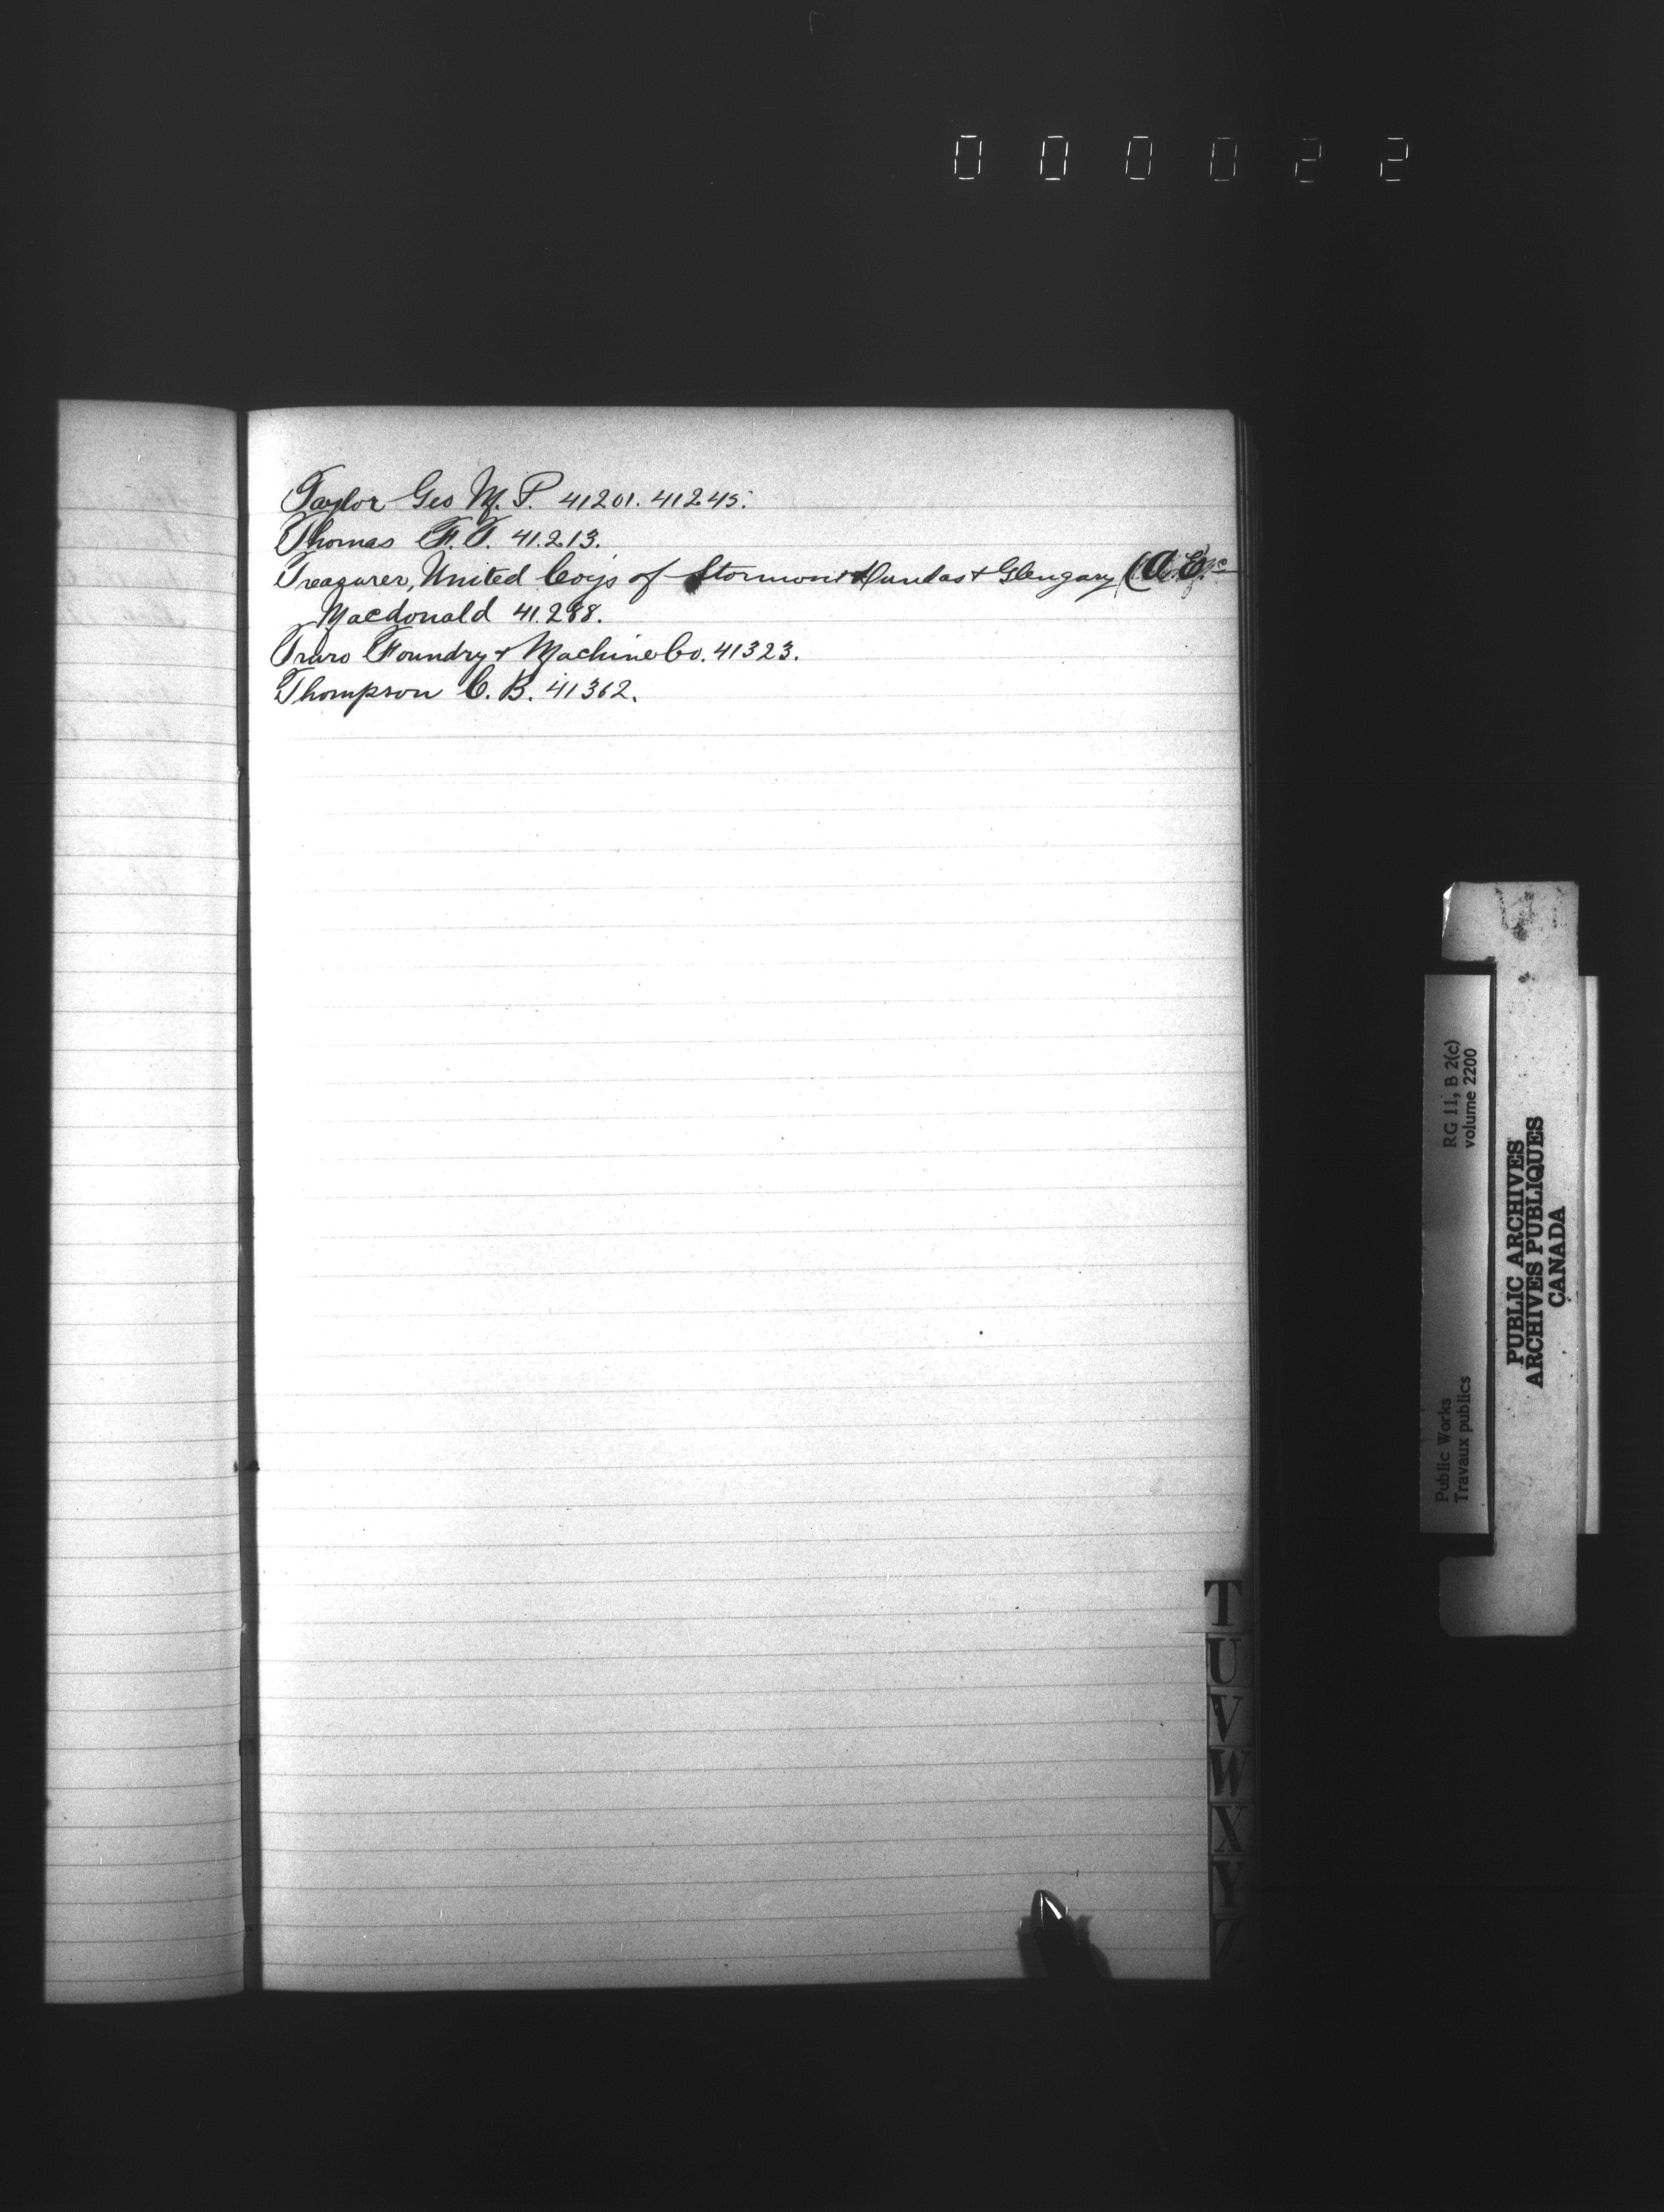 000022
Taylor Geo M. P. 41201. 41245.
Thomas F. T. 41.213.
Treasurer, United Coys of Stormont Dundas + Glengary (A. E.
Macdonald 41.288.
Truro Foundry + Machine Co. 41323.
Thompson C. B. 41362.
T
U
V
W
X
Y
Z
RG 11, B 2(c)
volume 2200
Public Works
Travaux publics
PUBLIC ARCHIVES
ARCHIVES PUBLIQUES
CANADA